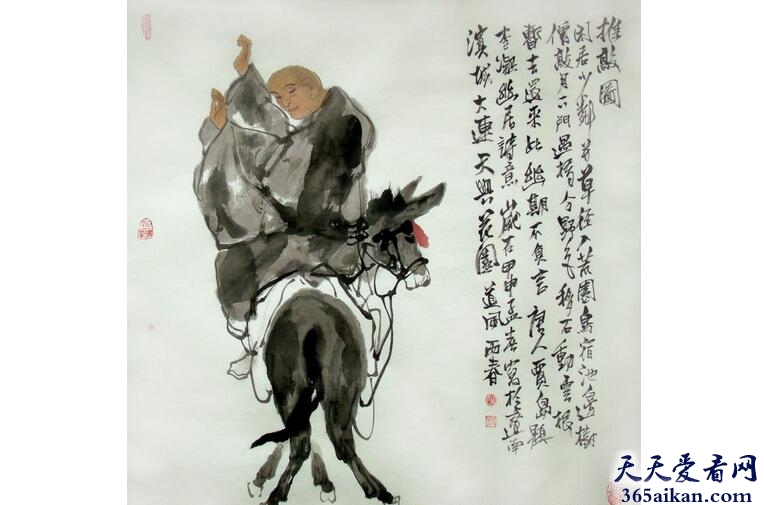 推敲圖
閑居少鄰并草徑入荒園鳥宿池邊樹
僧敲月下門過橋分野色移石動雲根
暫去還來此幽期不負言唐人賈島題
李凝幽居詩意歲在甲申孟春寫於遼南
濱城大連天興花園道風雨春
天天爱看网
365aikan.com